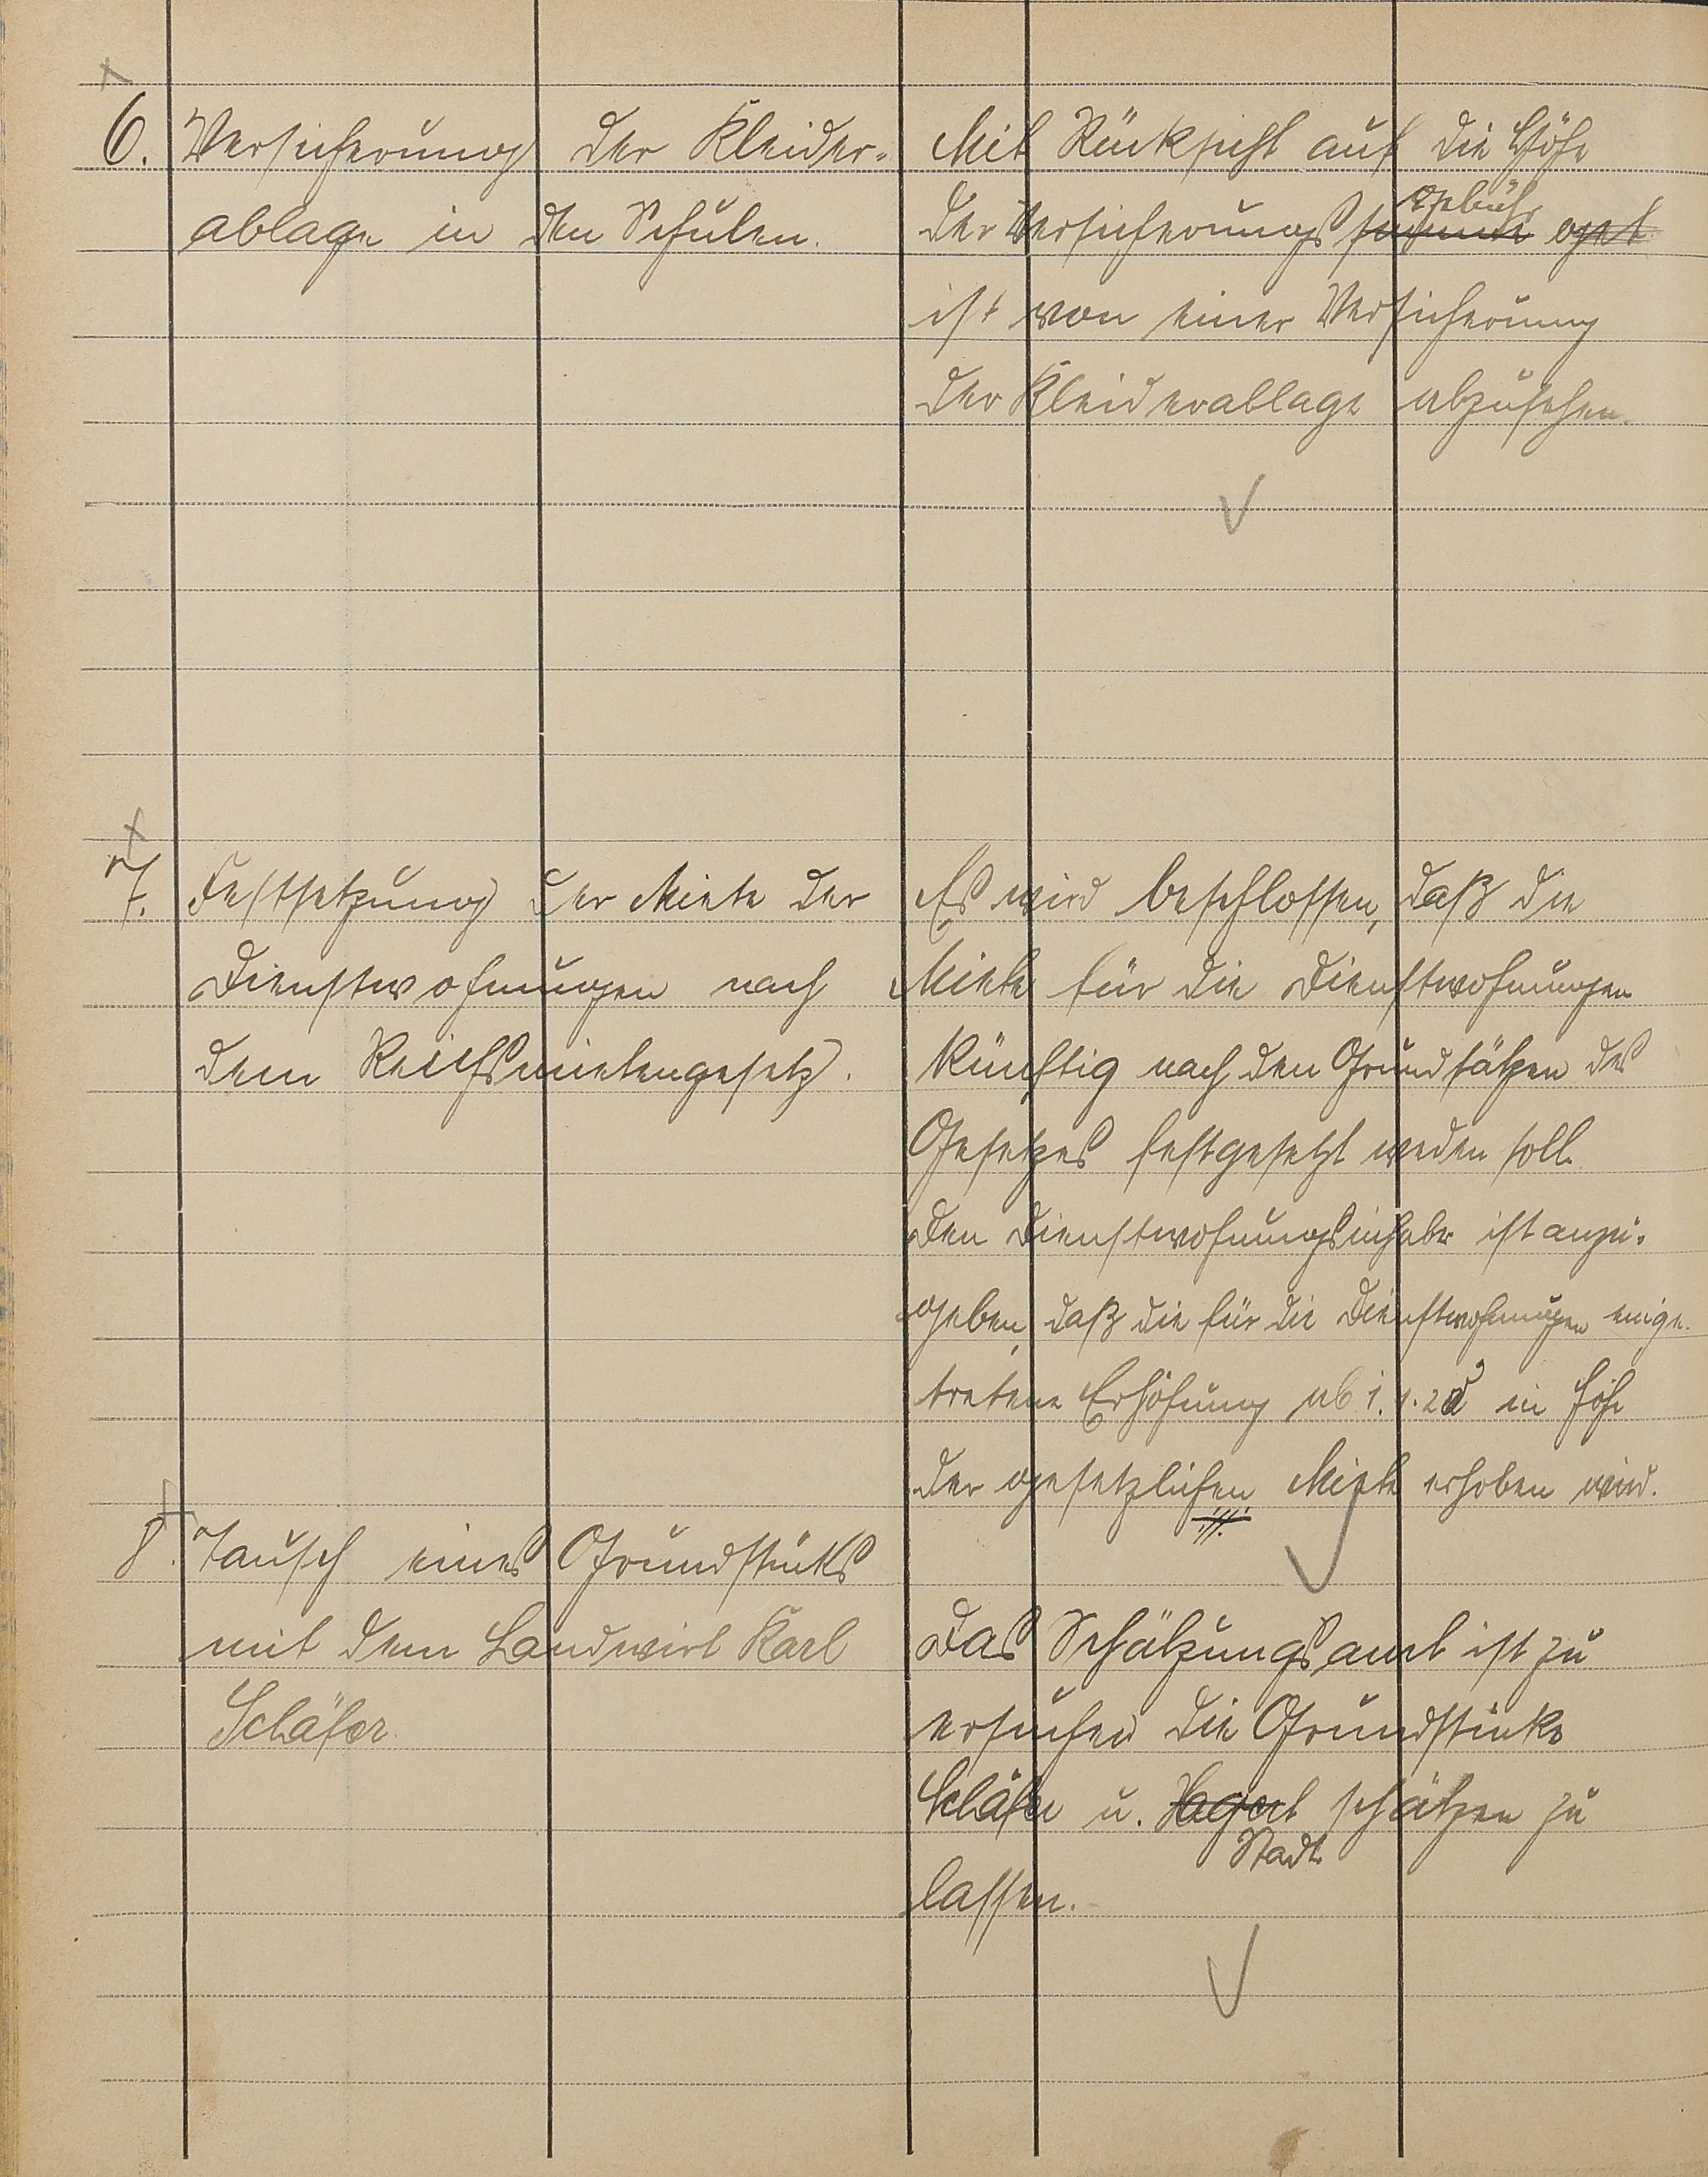 6. Versicherung der Kleider-
ablage in den Schulen.
Mit Rücksicht auf die Höhe
gebühr
der Versicherungssumme
ist von einer Versicherung
der Kleiderablage abzusehen.
7. Festsetzung der Miete der
Dienstwohnungen nach
dem Reichsmietengesetz.
Es wird beschlossen, daß die
Miete für die Dienstwohnungen
künftig nach den Grundsätzen des
Gesetzes festgesetzt werden soll.
Den Dienstwohnungsinhaber ist anzu-
geben, daß die für die Dienstwohnungen einge-
tretene Erhöhung ab 1. 1. in Höhe
der gesetzlichen Miete erhoben wird.
8. Tausch eines Grundstücks
mit dem Landwirt Karl
Schäfer.
Das Schätzungsamt ist zu
ersuchen die Grundstücke
Schäfer u. schätzen zu
Stadt
lassen.